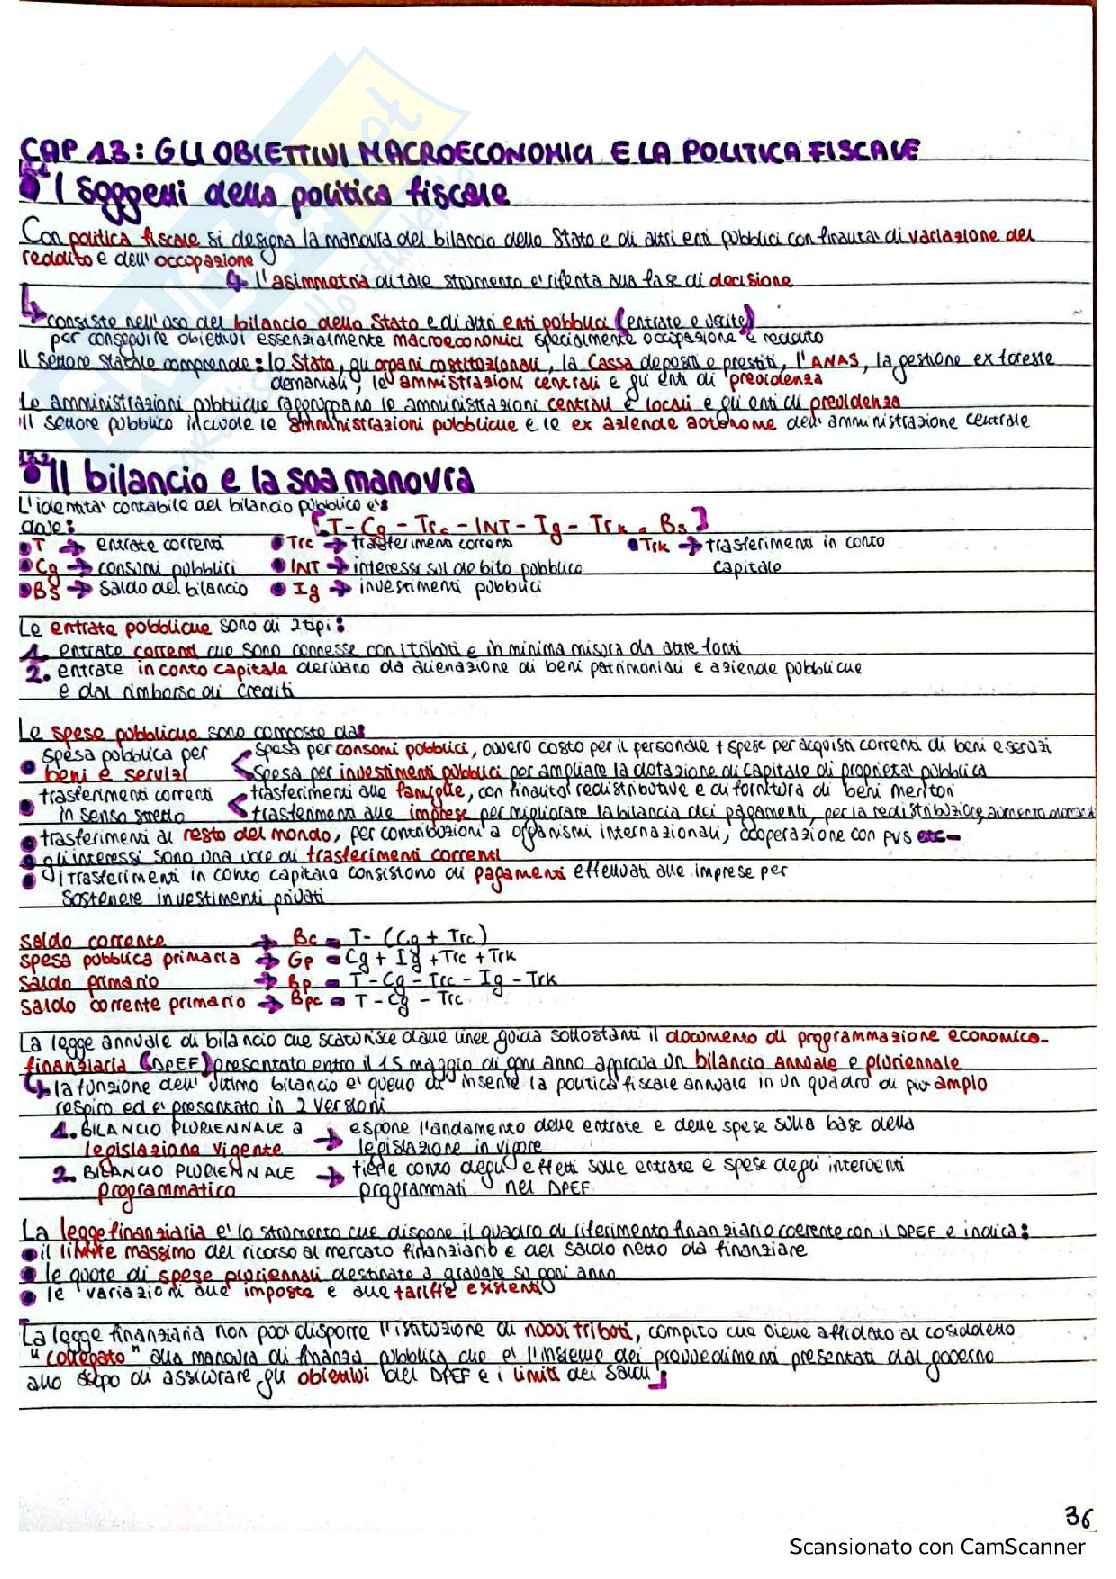 CAP 13: GLI OBIETTIVI MACROECONOMICI E LA POLITICA FISCALE
I soggetti della politica fiscale
Con politica fiscale si designa la manovra del bilancio dello Stato e di altri enti pubblici con finalità di variazione del
reddito e dell'occupazione
l'asimmetria di tale strumento è riferita alla fase di decisione
consiste nell'uso del bilancio dello Stato e di altri enti pubblici (entrate e uscite)
per conseguire obiettivi essenzialmente macroeconomici specialmente occupazione e reddito
Il settore statale comprende: lo Stato, gli organi costituzionali, la Cassa depositi e prestiti, l'ANAS, la gestione ex foreste
demaniali, le amministrazioni centrali e gli enti di previdenza
Le amministrazioni pubbliche raggruppano le amministrazioni centrali e locali e gli enti di previdenza
Il settore pubblico include le amministrazioni pubbliche e le ex aziende autonome dell'amministrazione centrale
13.2
Il bilancio e la sua manovra
L'identità contabile del bilancio pubblico è:
dove: [T - Cg - Trc - INT - Ig - Trk = Bs]
T → entrate correnti Trc → trasferimenti correnti Trk → trasferimenti in conto
Cg → consumi pubblici INT → interessi sul debito pubblico capitale
Bs → saldo del bilancio Ig → investimenti pubblici
Le entrate pubbliche sono di 2 tipi:
1. entrate correnti che sono connesse con i tributi e in minima misura da altre fonti
2. entrate in conto capitale derivano da alienazione di beni patrimoniali e aziende pubbliche
e dal rimborso di crediti
Le spese pubbliche sono composte da:
spesa pubblica per spesa per consumi pubblici, ovvero costo per il personale + spese per acquisti correnti di beni e servizi
beni e servizi spesa per investimenti pubblici per ampliare la dotazione di capitale di proprietà pubblica
trasferimenti correnti trasferimenti alle famiglie, con finalità redistributive e di fornitura di beni meritori
in senso stretto trasferimenti alle imprese per migliorare la bilancia dei pagamenti, per la redistribuzione, aumento
trasferimenti al resto del mondo, per contribuzioni a organismi internazionali, cooperazione con PVS etc-
gli interessi sono una voce di trasferimenti correnti
i trasferimenti in conto capitale consistono di pagamenti effettuati alle imprese per
sostenere investimenti privati
saldo corrente → Bc = T - (Cg + Trc)
spesa pubblica primaria → Gp = Cg + Ig + Trc + Trk
saldo primario → Bp = T - Cg - Trc - Ig - Trk
saldo corrente primario → Bpc = T - Cg - Trc
La legge annuale di bilancio che scaturisce dalle linee guida sottostanti il documento di programmazione economico-
finanziaria (DPEF) presentato entro il 15 maggio di ogni anno approva un bilancio annuale e pluriennale
la funzione dell'ultimo bilancio è quello di inserire la politica fiscale annuale in un quadro di più ampio
respiro ed è presentato in 2 versioni
1. BILANCIO PLURIENNALE a → espone l'andamento delle entrate e delle spese sulla base della
legislazione vigente legislazione in vigore
2. BILANCIO PLURIENNALE → tiene conto degli effetti sulle entrate e spese degli interventi
programmatico programmati nel DPEF
La legge finanziaria è lo strumento che dispone il quadro di riferimento finanziario coerente con il DPEF e indica:
il limite massimo del ricorso al mercato finanziario e del saldo netto da finanziare
le quote di spese pluriennali destinate a gravare su ogni anno
le variazioni alle imposte e alle tariffe esistenti
La legge finanziaria non può disporre l'istituzione di nuovi tributi, compito che viene affidato al cosiddetto
"collegato" alla manovra di finanza pubblica che è l'insieme dei provvedimenti presentati dal governo
allo scopo di assicurare gli obiettivi del DPEF e i limiti dei saldi]
36
Scansionato con CamScanner